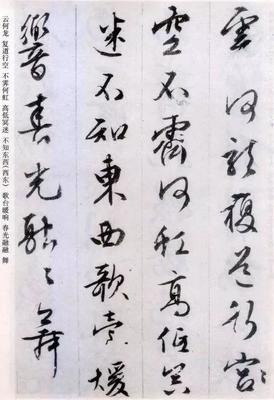 雲何龍複道行宮
空不霽何虹高低冥
迷不知東西歌臺暖
響春光融々舞
云何龙 复道行空 不霁何虹 高低冥迷 不知东西(西东) 歌台暖响 春光融融 舞